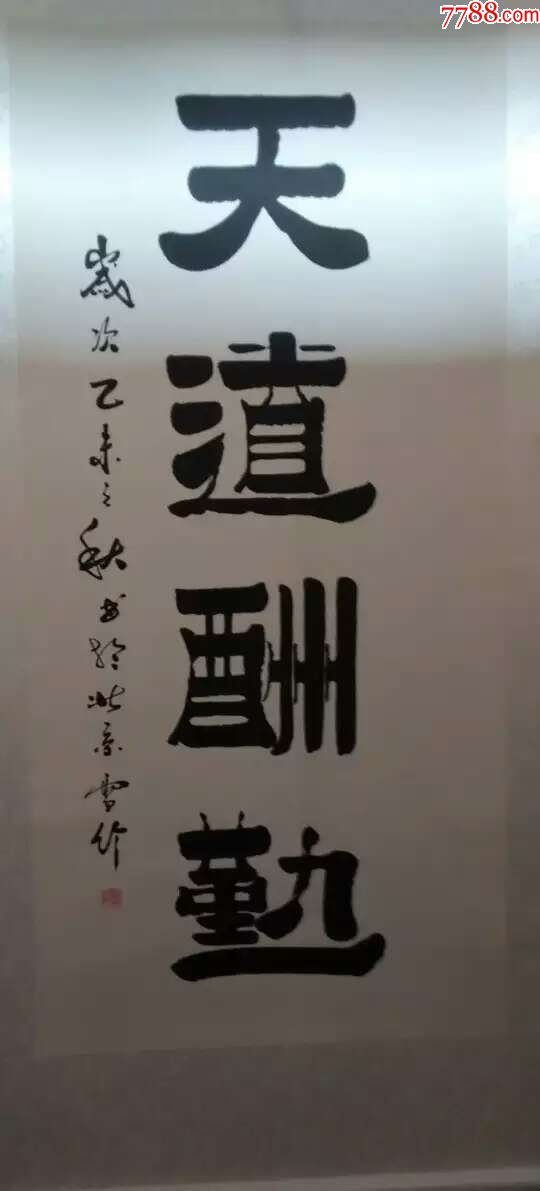 7788.com
天道酬勤
歲次乙未之秋书於北京雪竹